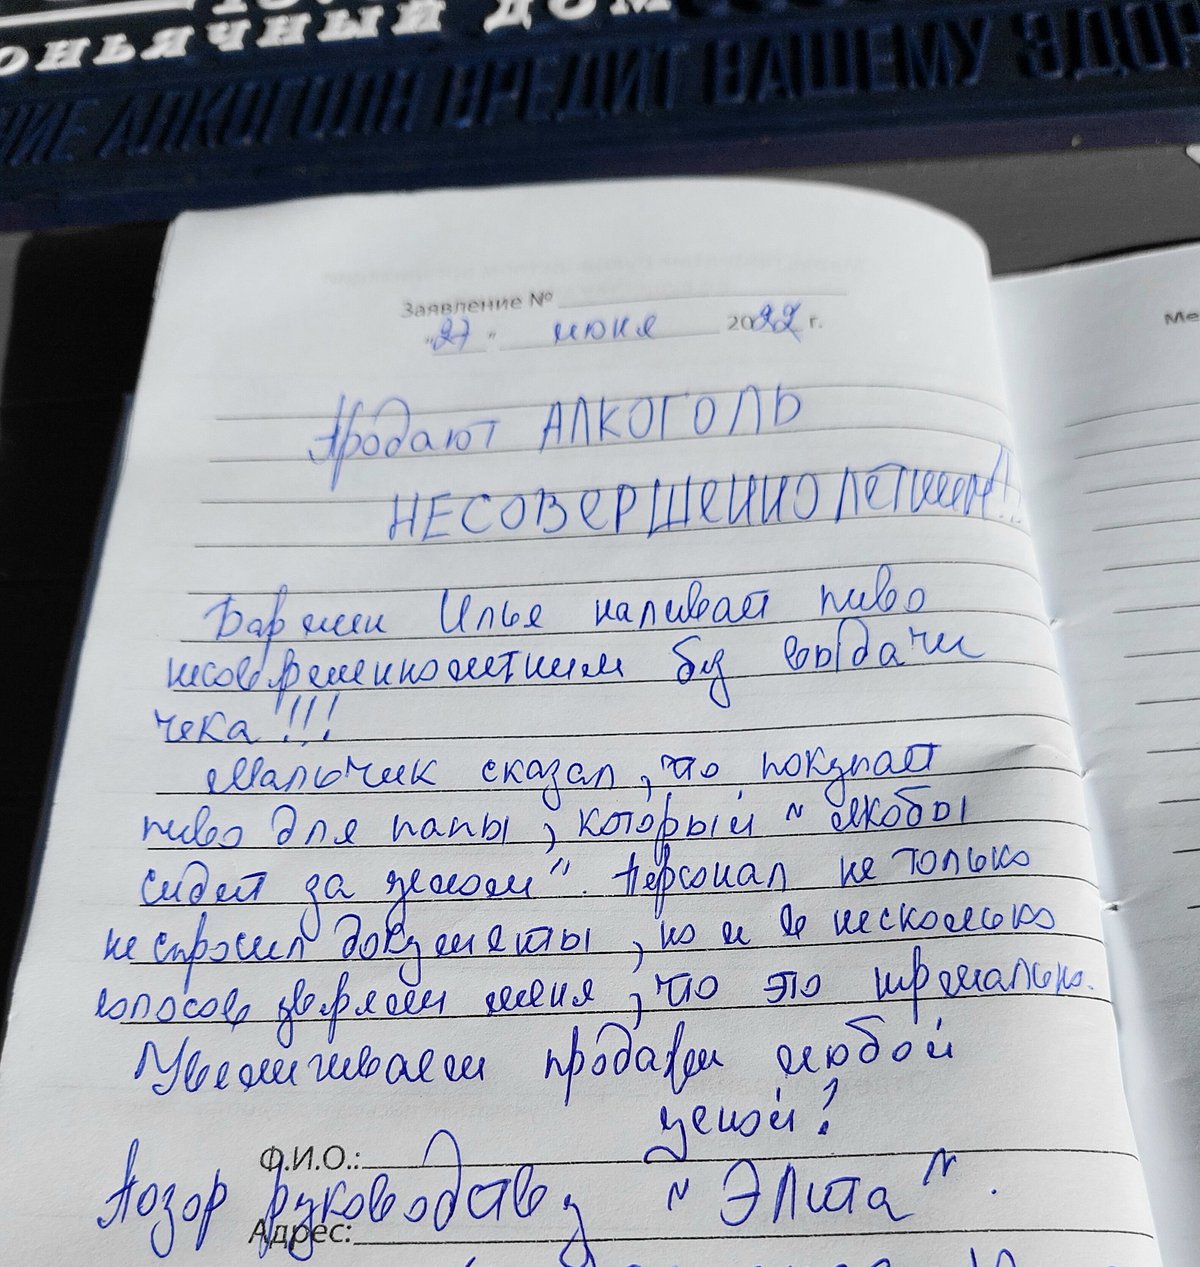 ОНЬЯЧНЫЙ ДОМ
НИЕ АЛКОГОЛЯ ВРЕДИТ ВАШЕМУ ЗДОР
Заявление №
"27" июня 2022 г.
Продают АЛКОГОЛЬ
НЕСОВЕРШЕННОЛЕТНИМ!!!
Бармен Илья наливает пиво
несовершеннолетним без выдачи
чека!!!
Мальчик сказал, что покупает
пиво для папы, который "якобы
сидит за углом". Персонал не только
не спросил документы, но и в несколько
голосов уверяли меня, что это нормально.
Увеличиваем продажи любой
ценой?
Ф.И.О.:
Позор руководству "Элита".
Адрес:
Ме